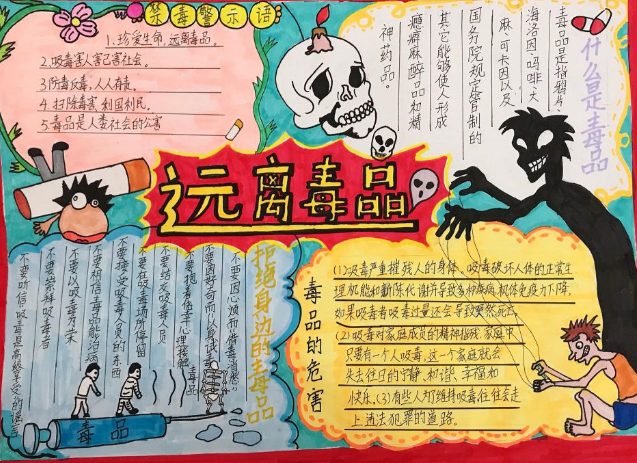 禁毒警示语
1.珍爱生命,远离毒品。
2.吸毒害人害己害社会。
3.防毒反毒,人人有责。
4.扫除毒害,利国利民。
5.毒品是人类社会的公害
什么是毒品
毒品是指鸦片、
海洛因、吗啡、大
麻、可卡因以及
国务院规定管制的
其它能够使人形成
瘾癖麻醉品和精
神药品。
远离毒品
拒绝身边的毒品
不要因心烦而借毒消愁。
不要因好奇而以身试毒
不要抱有侥幸心理接触毒品
不要结交吸毒人员
不要在吸毒场所停留
不要接受吸毒人员的东西
不要相信毒品能治病
不要以吸毒为荣
不要崇拜吸毒者
不要听信吸毒是高级享受的谣言
毒品
毒品的危害
(1)吸毒严重摧残人的身体、吸毒破坏人体的正常生
理机能和新陈代谢并导致多种疾病,机体免疫力下降,
如果吸毒者吸毒过量还会导致突然死亡
(2)吸毒对家庭成员的精神摧残,家庭中
只要有一个人吸毒,这一个家庭就会
失去往日的宁静、和谐、幸福和
快乐、(3)有些人为维持吸毒往往会走
上违法犯罪的道路。